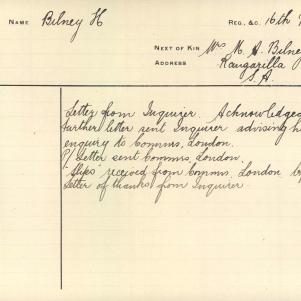 NAME Bilney H REG., &C. 16th
NEXT OF KIN Mrs M. A. Bilne
ADDRESS Kangarilla
S.A.
Letter from Inquirer. Acknowledged
Further letter sent Inquirer advising h
enquiry to Comms, London.
Letter sent Comms, London.
"Slips" received from Comms. London
Letter of thanks from Inquirer.